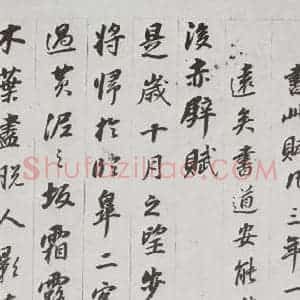 書此賦凡三年一
遠矣書道安能
後赤壁賦
是歲十月之望步
将歸於臨皋二客
過黄泥之坂霜露
木葉盡脱人影
Shufaziliao.com